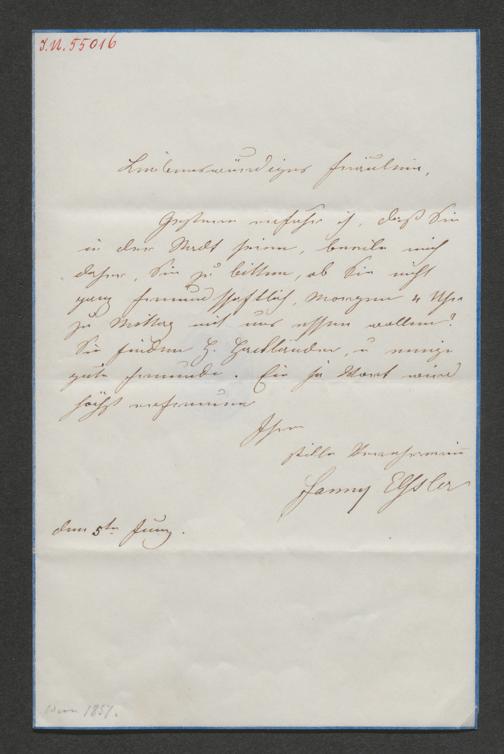 I.N. 55016
Liebenswürdiges Fräulein,
Gestern erfuhr ich, daß Sie
in der Stadt seien, beeile mich
daher, Sie zu bitten, ob Sie nicht
ganz freundschaftlich, Morgen 4 Uhr
zu Mittag mit uns essen wollen?
Sie finden H. Hackländer, u einige
gute Freunde. Ein ja Wort wird
höchst erfreuen
Ihre
stille Verehrerin
Fanny Elßler
den 5ten Juny.
Wien 1857.